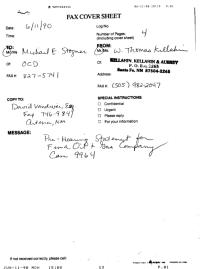 FAX COVER SHEET
Date: 6/11/90
Log No
Time:
Number of Pages 4
(including cover sheet)
TO:
Mr/Ms Michael E Stogner
Of: OCD
FAX #: 827-5741
FROM:
Mr/Ms. W. Thomas Kellahin
Of: KELLAHIN, KELLAHIN & AUBREY
P. O. Box 2265
Santa Fe, NM 87504-2265
Address:
FAX #: (505) 982-2047
COPY TO:
David Vandiver, Esq
Fax 746-
Artesia, NM
SPECIAL INSTRUCTIONS
Confidential
Urgent
Please reply
For your information
MESSAGE:
Pre-Hearing Statement for
Oil & Gas Company
Case 9964
If not received correctly, please call:
JUN-11-90 MON
P.01